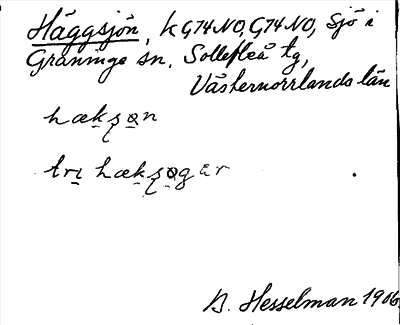 Häggsjön, k G74NO, G74NO, Sjö i
Graninge sn. Sollefteå tg,
Västernorrlands län
hækson
tri hæksogar
B. Hesselman 1906